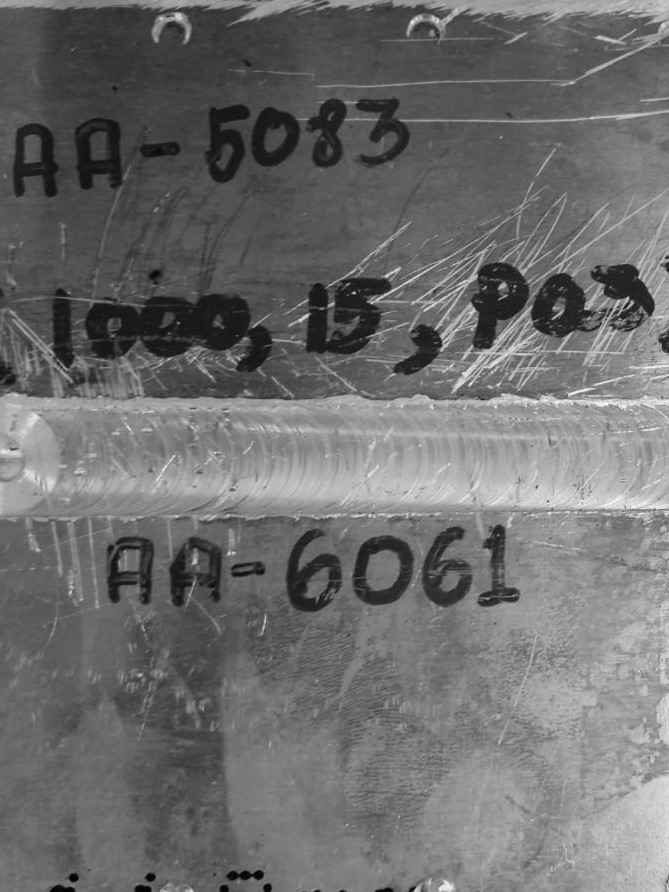 AA-5083
1000, 15, Pos
AA-6061